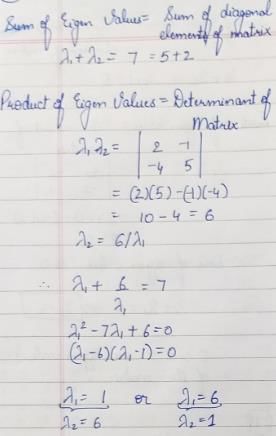 Sum of Eigen Values = Sum of diagonal
elements of matrix
λ₁ + λ₂ = 7 = 5+2
Product of Eigen Values = Determinant of
Matrix
λ₁λ₂ = | 2 -1 |
| -4 5 |
= (2)(5) - (-1)(-4)
= 10 - 4 = 6
λ₂ = 6/λ₁
∴ λ₁ + 6/λ₁ = 7
λ₁² - 7λ₁ + 6 = 0
(λ₁-6)(λ₁-1) = 0
λ₁ = 1 or λ₁ = 6
λ₂ = 6 λ₂ = 1